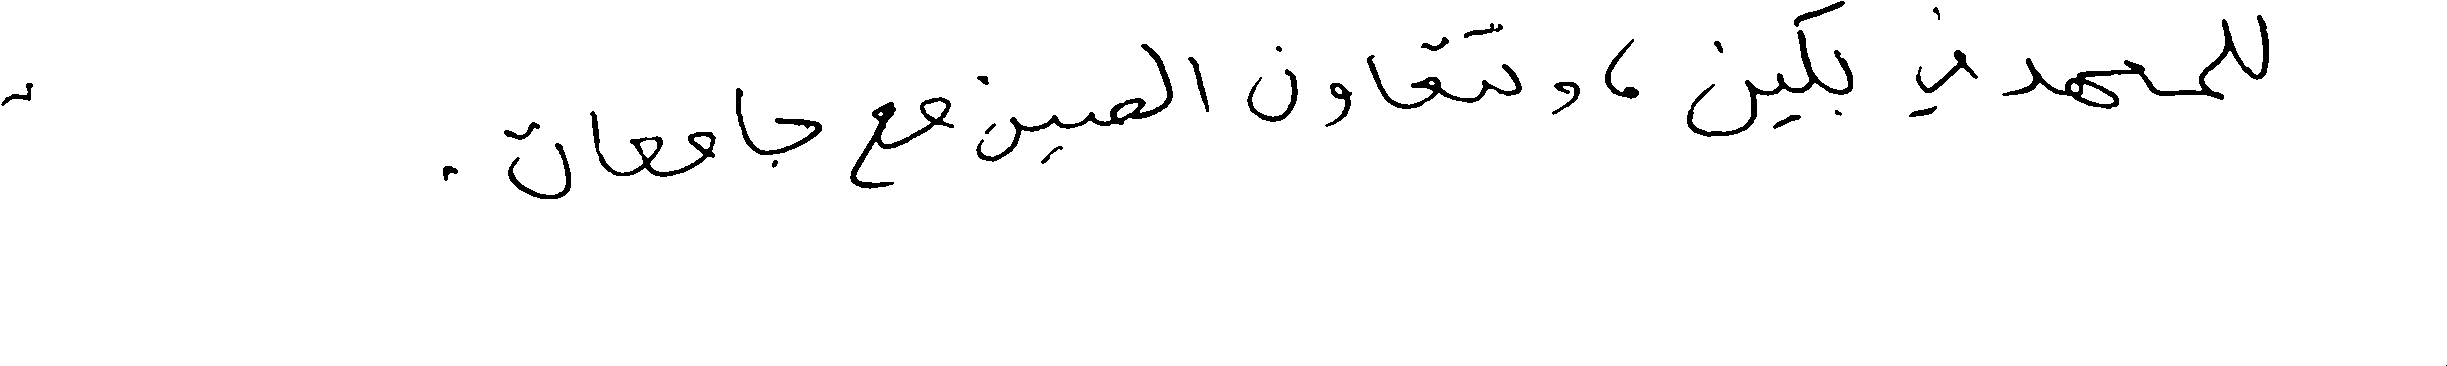 للمعهد في بكين ، وتتعاون الصين مع جامعات .